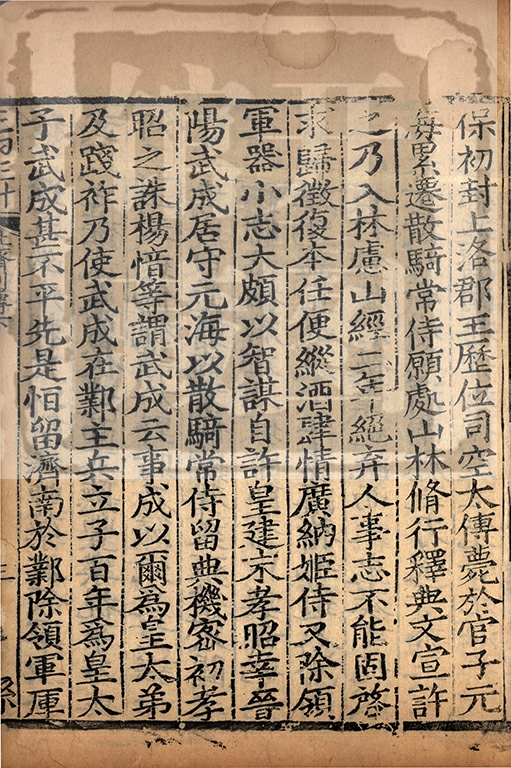 保初封上洛郡王歷位司空太傅薨於官子元
海累遷散騎常侍願處山林脩行釋典文宣許
之乃入林慮山經二年絕弃人事志不能固啓
求歸徵復本任便縱酒肆情廣納姬侍又除領
軍器小志大頗以智謀自許皇建末孝昭幸晉
陽武成居守元海以散騎常侍留典機密初孝
昭之誅楊愔等謂武成云事成以爾為皇太弟
及踐祚乃使武成在鄴主兵立子百年爲皇太
子武成甚不平先是恒留濟南於鄴除領軍厙